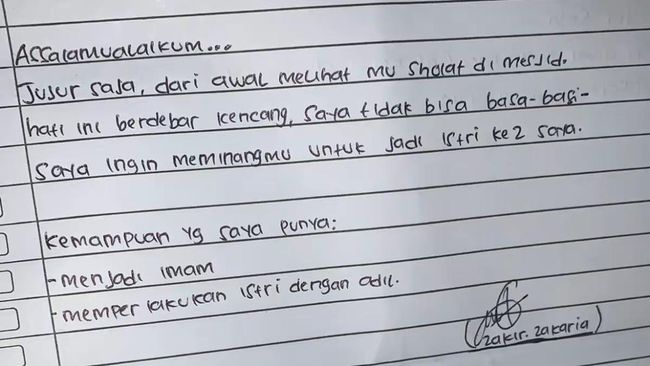 Assalamualaikum...
Jujur saja, dari awal melihat mu sholat di mesjid.
hati ini berdebar kencang, saya tidak bisa basa-basi-
saya ingin meminangmu untuk jadi istri ke 2 saya.
kemampuan yg saya punya:
-menjadi imam
-memper lakukan istri dengan adil.
(zakir. zakaria)